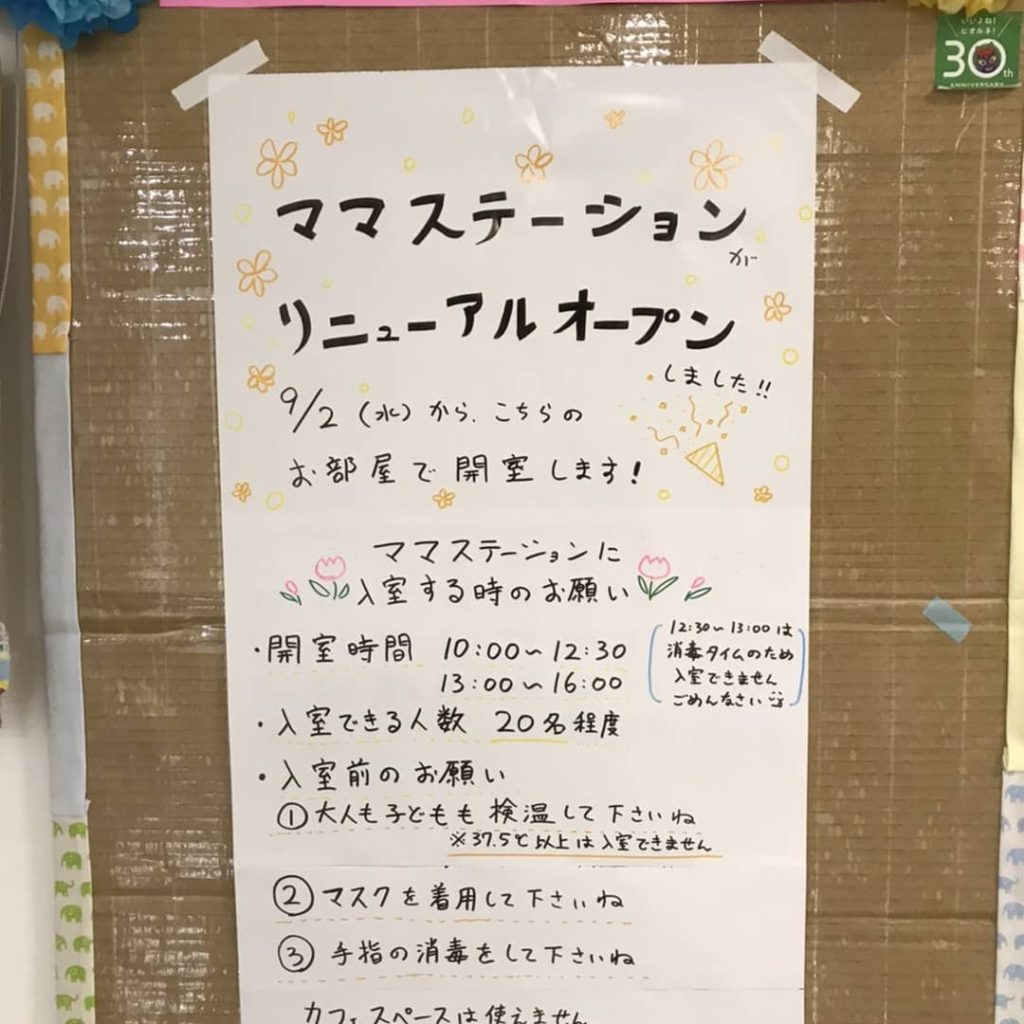 いいよね!
ビオルネ!
30th
ANNIVERSARY
ママステーションが
リニューアルオープン
しました!!
9/2(水)から、こちらの
お部屋で開室します!
ママステーションに
入室する時のお願い
・開室時間 10:00~12:30
13:00~16:00
12:30~13:00は
消毒タイムのため
入室できません
ごめんなさい
・入室できる人数 20名程度
・入室前のお願い
①大人も子どもも検温して下さいね
※37.5℃以上は入室できません
②マスクを着用して下さいね
③手指の消毒をして下さいね
カフェスペースは使えません